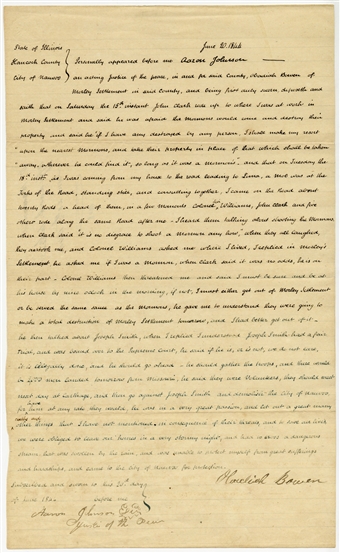 State of Illinois
Hancock County
City of Nauvoo
June 20. 1844
Personally appeared before me Aaron Johnson
an acting Justice of the peace, in and for said County, Obadiah Bowen of
Morley Settlement in said County, and being first duly sworn deposeth and
saith that on Saturday the 15th instant John Clark rode up to where I was at work in
Morley Settlement and said he was afraid the Mormons would come and destroy their
property, and said he "if I have any destroyed by any person, I shall make my resort
upon the nearest Mormons, and take their property in place of that which should be taken
away, wherever he could find it, so long as it was a Mormon's. and that on Tuesday the
18th inst. as I was coming from my land to the road leading to Lima, a mob was at the
forks of the Road, standing still, and consulting together, I came on the Road about
twenty Rods a head of them, in a few moments Colonel Williams, John Clark and five
others rode along the same Road after me. I heard them talking about shooting the Mormons
when Clark said "it is no disgrace to shoot a Mormon any how", when they all laughed,
they overtook me, and Colonel Williams asked me where I lived, I replied in Morley's
Settlement he asked me if I was a Mormon, when Clark said it was no odds, he is in
their part. Colonel Williams then threatened me and said I must be sure and be at
his house by nine o'clock in the morning, if not, I must either get out of Morley Settlement
or be served the same way as the Mormons, he gave me to understand they were going to
make a total destruction of Morley Settlement tomorrow, and I had better get out of it.
he then talked about Joseph Smith, when I replied I understood Joseph Smith had a fair
trial, and was bound over to the Supreme Court, he said if he is, or is not, we do not care,
and he should go ahead. he should gather the troops, and there would
be 1,400 men landed tomorrow from Missouri, he said they were Volunteers, they should meet
next day at Carthage, and then go against Joseph Smith and demolish the City of Nauvoo
before he was in a very great passion, and let out a great many
other things that I have not mentioned, in consequence of their threats, and to save our lives
we were obliged to leave our homes in a very stormy night, and had a
stream that was swollen by the rain, and was unable to extort myself from great sufferings
and hardships, and came to the City of Nauvoo for protection.
Subscribed and sworn to this 20th day
of June 1844 before me
Aaron Johnson
Justice of the Peace
Obadiah Bowen